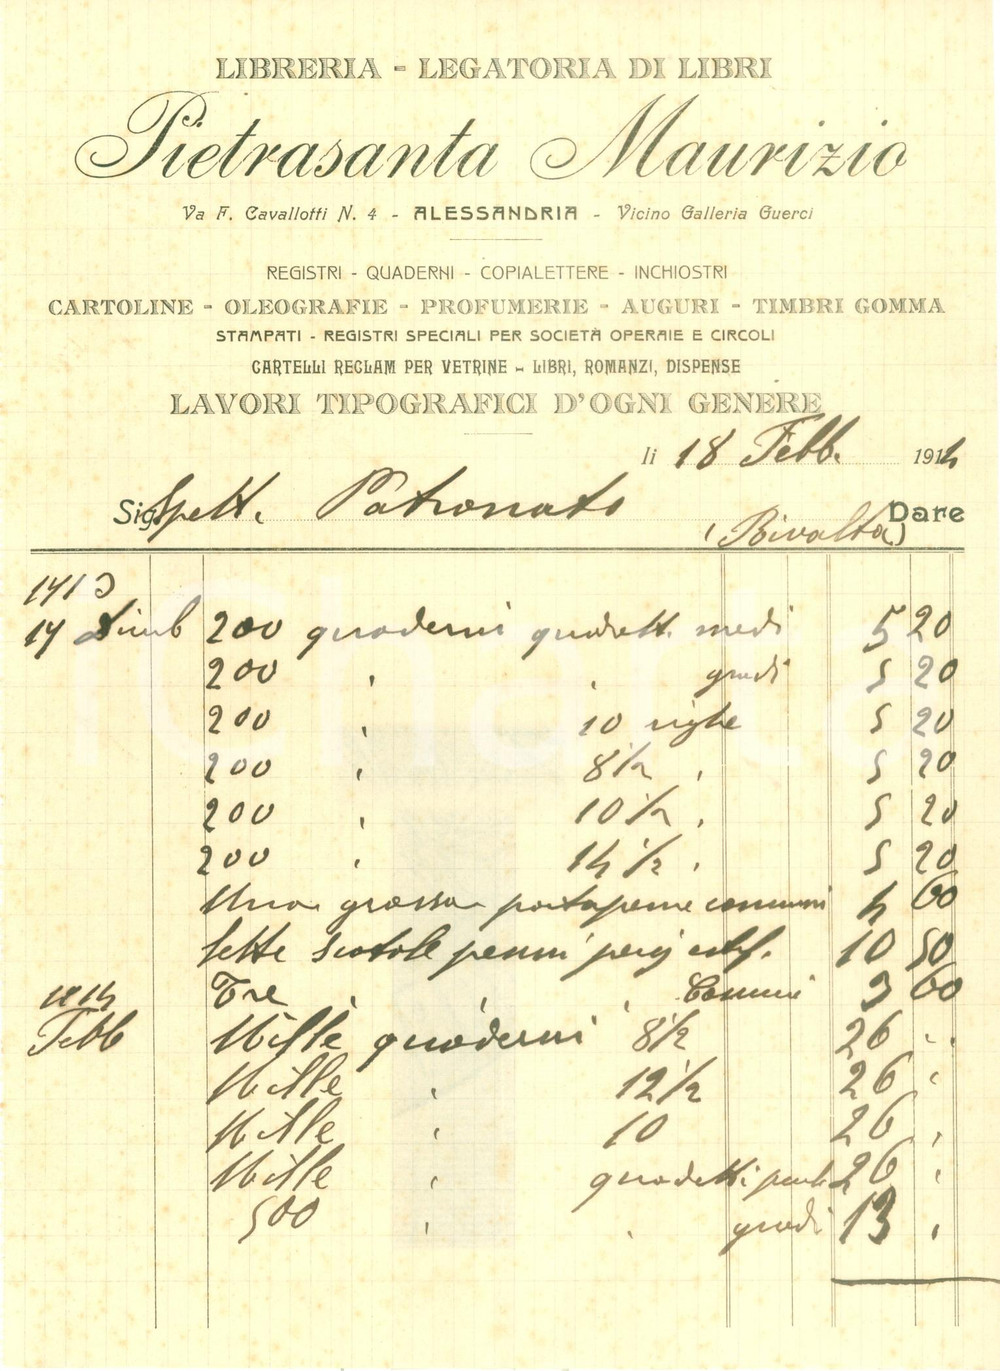 LIBRERIA - LEGATORIA DI LIBRI
Pietrasanta Maurizio
Va F. Cavallotti N. 4 - ALESSANDRIA - Vicino Galleria Guerci
REGISTRI - QUADERNI - COPIALETTERE - INCHIOSTRI
CARTOLINE - OLEOGRAFIE - PROFUMERIE - AUGURI - TIMBRI GOMMA
STAMPATI - REGISTRI SPECIALI PER SOCIETÀ OPERAIE E CIRCOLI
CARTELLI RECLAM PER VETRINE - LIBRI, ROMANZI, DISPENSE
LAVORI TIPOGRAFICI D'OGNI GENERE
li 18 Febb. 1914
Sig. Spett. Patronato
(Rivalta) Dare
1913
14 200 quaderni quadrett. medi 5 20
200 , , gradi 5 20
200 , 10 righe 5 20
200 , 8½ , 5 20
200 , 10½ , 5 20
200 , 14½ , 5 20
Una grossa portapenne comuni 4 60
Sette scatole pennini 10 50
1914 Tre , , , Comuni 3 60
Febb Mille quaderni 8½ 26 , ,
Mille , 12½ 26 ,
Mille , 10 26 ,
Mille , quadretti 26 ,
500 , , gradi 13 ,